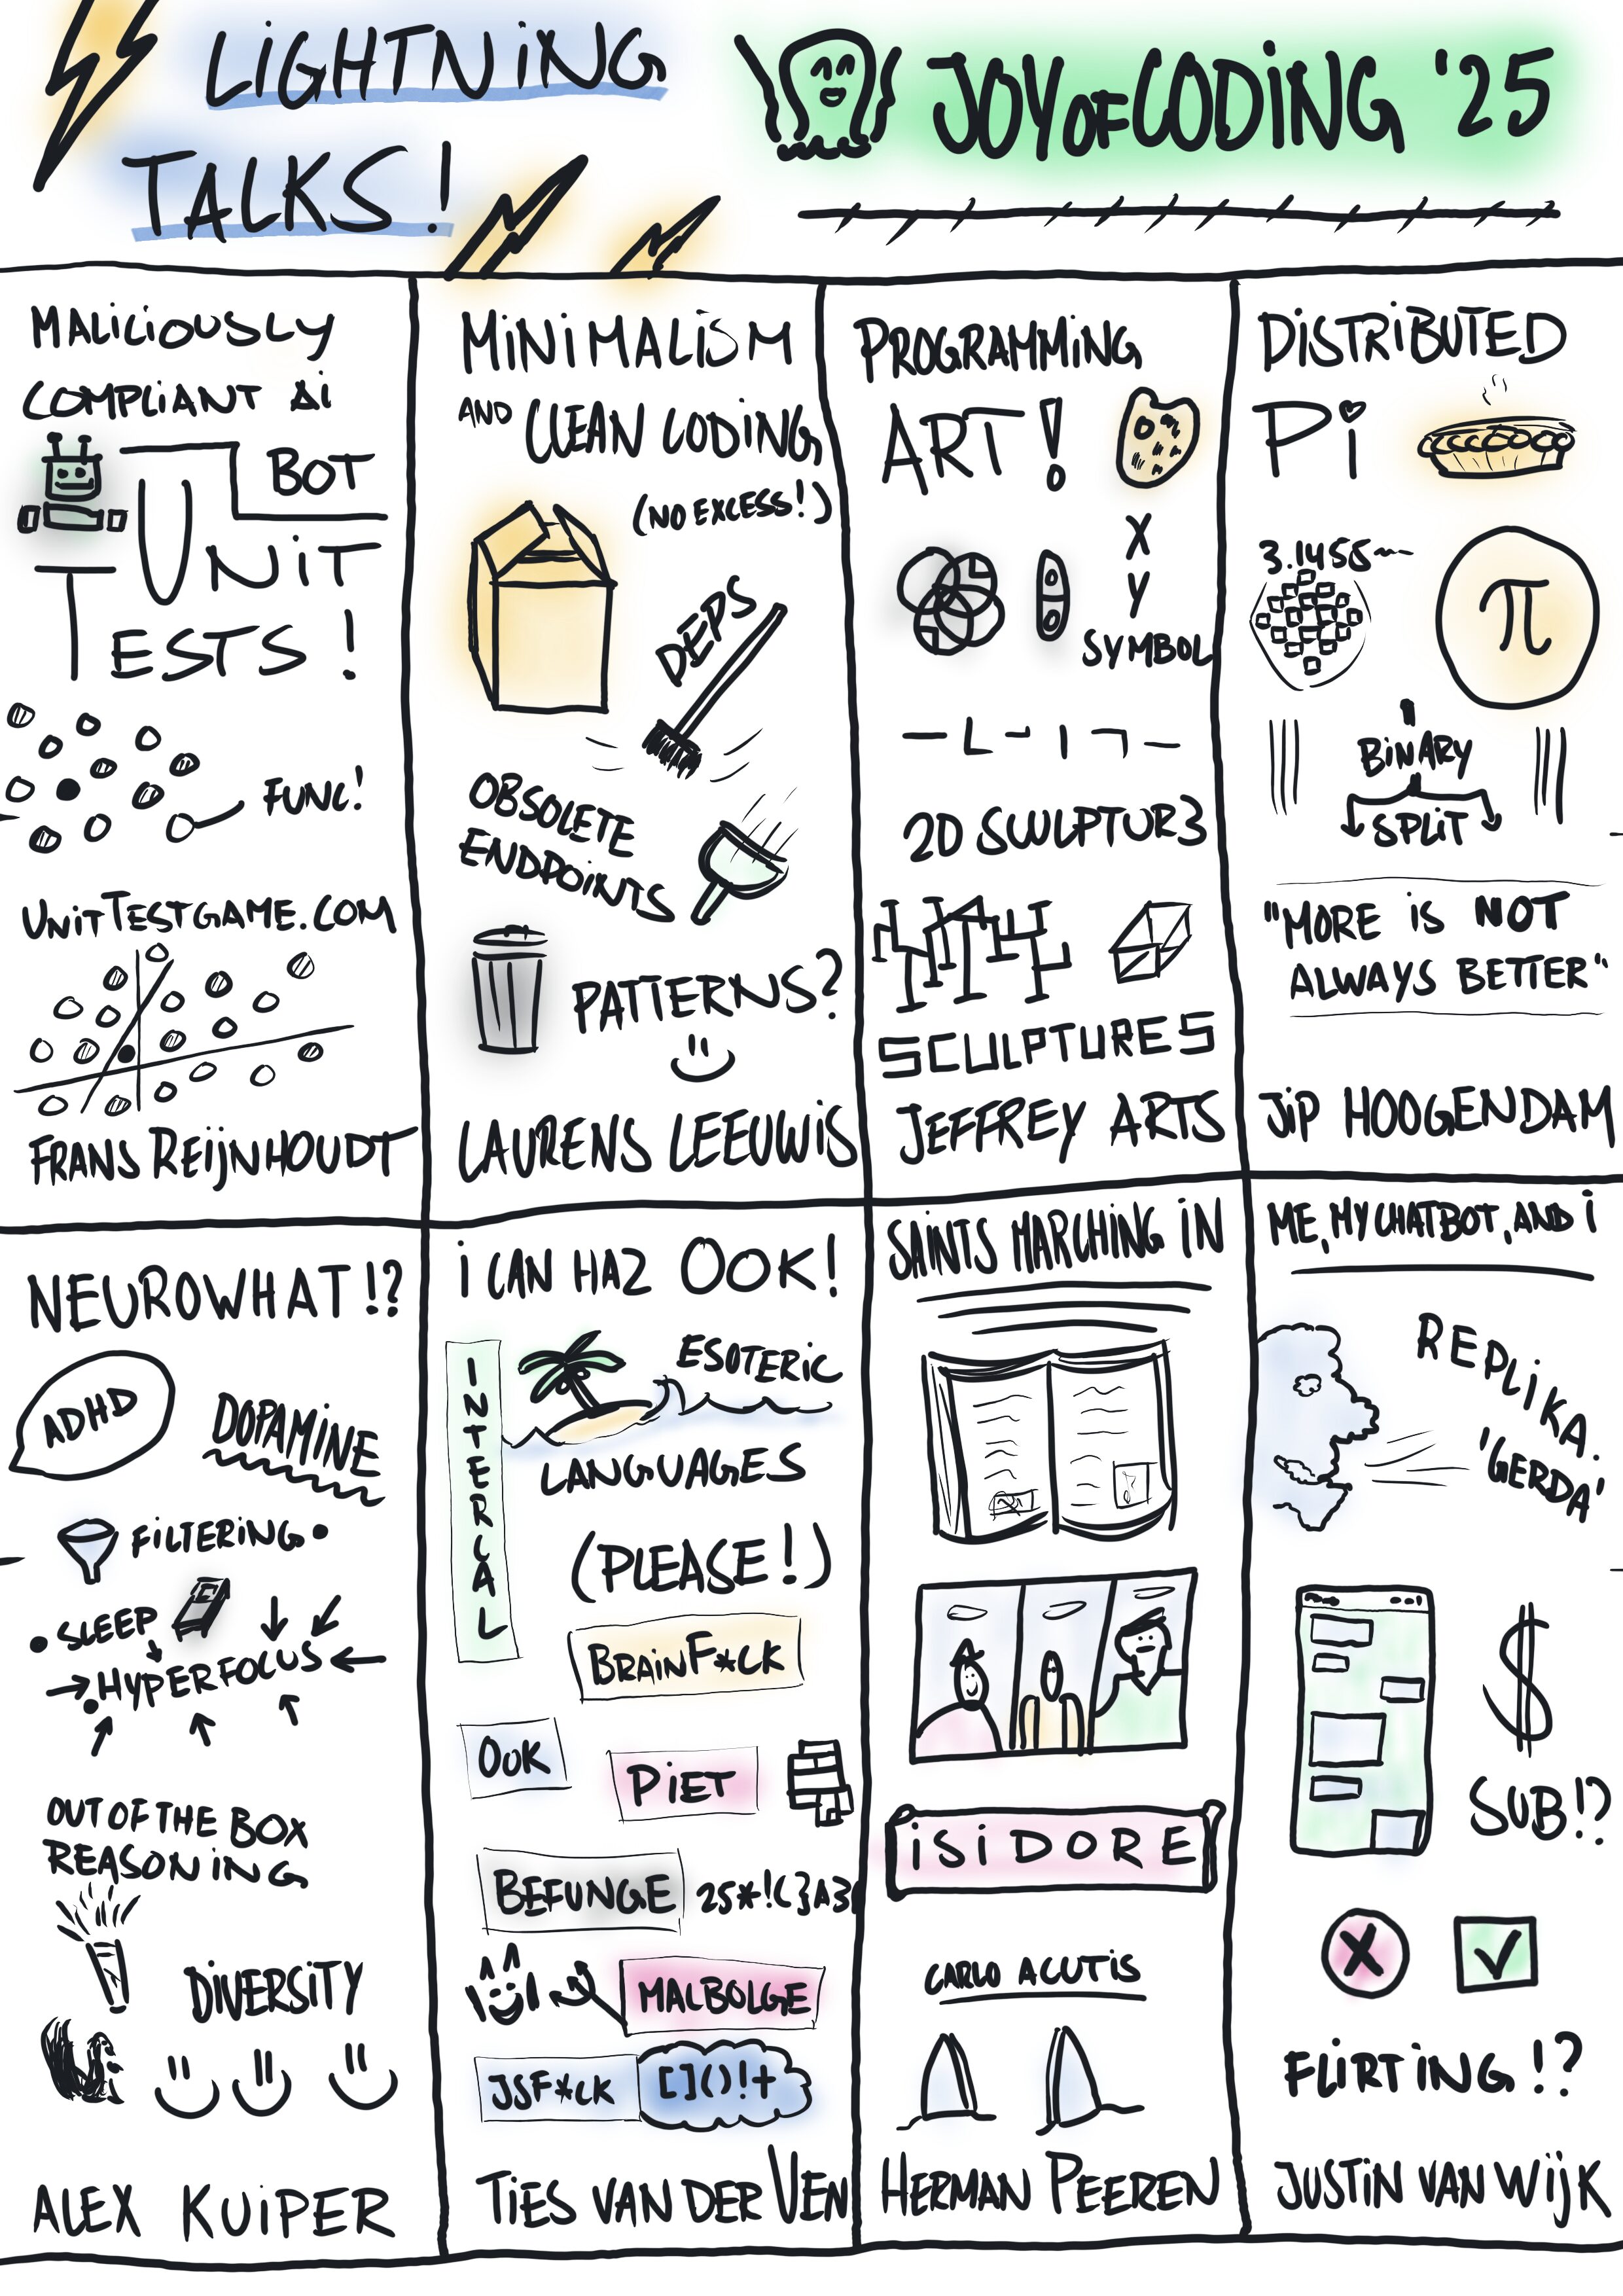 LiGHTNiNG
TALKS!
JOY OF CODiNG '25
MALiCiOUSLY
COMPLiANT Ai
BOT
UNiT
TESTS!
FUNC!
UNiTTESTGAME.COM
FRANS REijNHOUDT
MiNiMALiSM
AND CLEAN CODiNG
(NO EXCESS!)
DEPS
OBSOLETE
ENDPOiNTS
PATTERNS?
LAURENS LEEUWiS
PROGRAMMiNG
ART!
X
Y
SYMBOL
2D SCULPTUR3
SCULPTURES
JEFFREY ARTS
DiSTRiBUTED
Pi
3.1455
π
BiNARY
SPLiT
"MORE iS NOT
ALWAYS BETTER"
JiP HOOGENDAM
NEUROWHAT!?
ADHD
DOPAMiNE
FiLTERiNG
SLEEP
HYPERFOCUS
OUT OF THE BOX
REASONiNG
DiVERSiTY
ALEX KUiPER
i CAN HAZ OOK!
INTERCAL
ESOTERiC
LANGUAGES
(PLEASE!)
BRAiNF*CK
OOK
PiET
BEFUNGE 25*!(}A3
MALBOLGE
JSF*CK []()!+
TiES VAN DER VEN
SAiNTS MARCHiNG iN
iSiDORE
CARLO ACUTiS
HERMAN PEEREN
ME, MY CHATBOT, AND i
REPLiKA.
'GERDA'
$
SUB!?
X
FLiRTiNG!?
JUSTiN VAN WijK